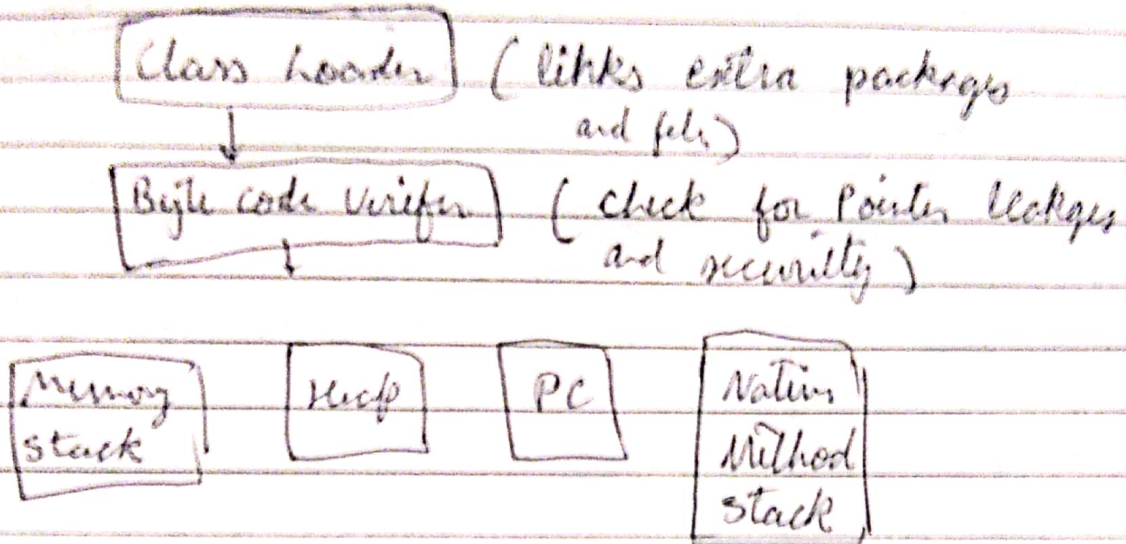 Class Loader (links extra packages
and file)
Byte code Verifier (check for Pointer leakges
and security)
Memory
stack
Heap
PC
Native
Method
stack